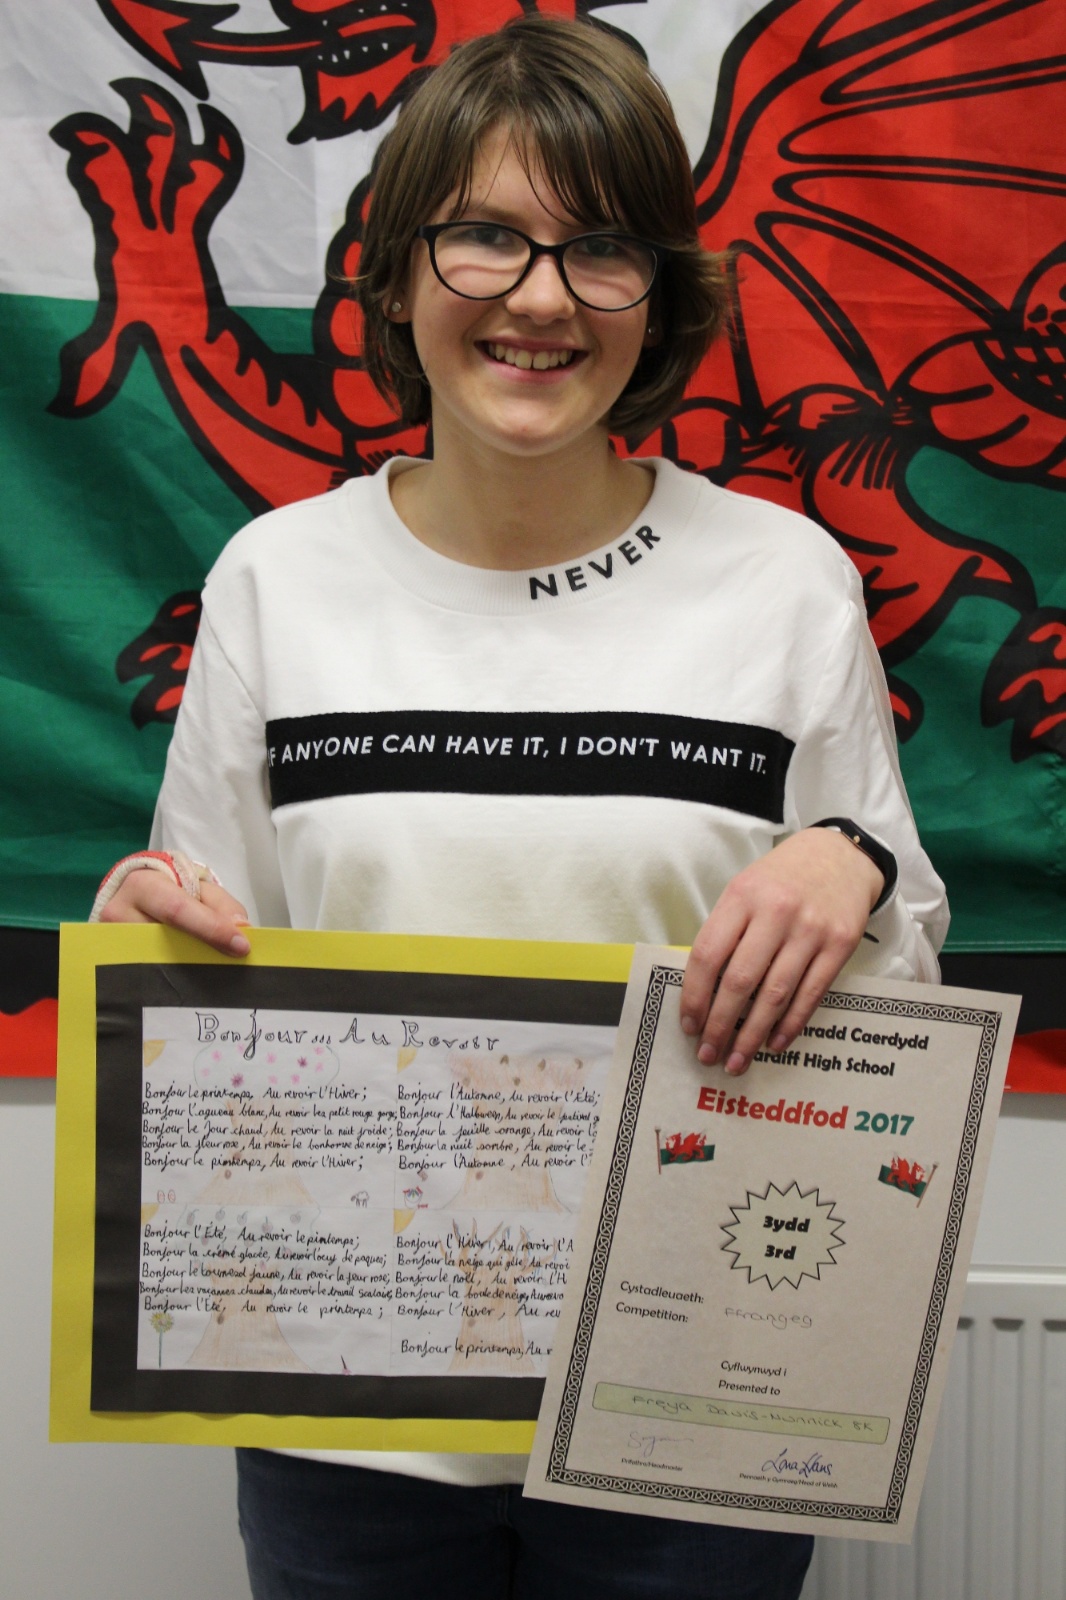 NEVER
IF ANYONE CAN HAVE IT, I DON'T WANT IT.
Bonjour... Au Revoir
Bonjour le printemps, Au revoir l'Hiver;
Bonjour l'agneau blanc, Au revoir les petit rouge gorge;
Bonjour le jour chaud, Au revoir la nuit froide;
Bonjour la fleur rose, Au revoir le bonhomme de neige;
Bonjour le printemps, Au revoir l'Hiver;
Bonjour l'Automne, Au revoir l'Été;
Bonjour l'Halloween, Au revoir le
Bonjour la feuille orange, Au revoir l
Bonjour la nuit sombre, Au revoir le
Bonjour l'Automne, Au revoir l'
Bonjour l'Été, Au revoir le printemps;
Bonjour la crème glacée, Au revoir l'oeuf de paques;
Bonjour le tournesol jaune, Au revoir la fleur rose;
Bonjour les vacances chaudes, Au revoir le travail scolaire;
Bonjour l'Été, Au revoir le printemps;
Bonjour l'Hiver, Au revoir l'A
Bonjour la neige qui gèle, Au revoi
Bonjour le noël, Au revoir l'H
Bonjour la boule de neige, Au revo
Bonjour l'Hiver, Au rev
Bonjour le printemps, Au r
Caerdydd
Cardiff High School
Eisteddfod 2017
3ydd
3rd
Cystadleuaeth:
Competition: Ffrangeg
Cyflwynwyd i
Presented to
Freya Davis-Nunnick 8K
Prifathro/Headmaster
Pennaeth y Gymraeg/Head of Welsh